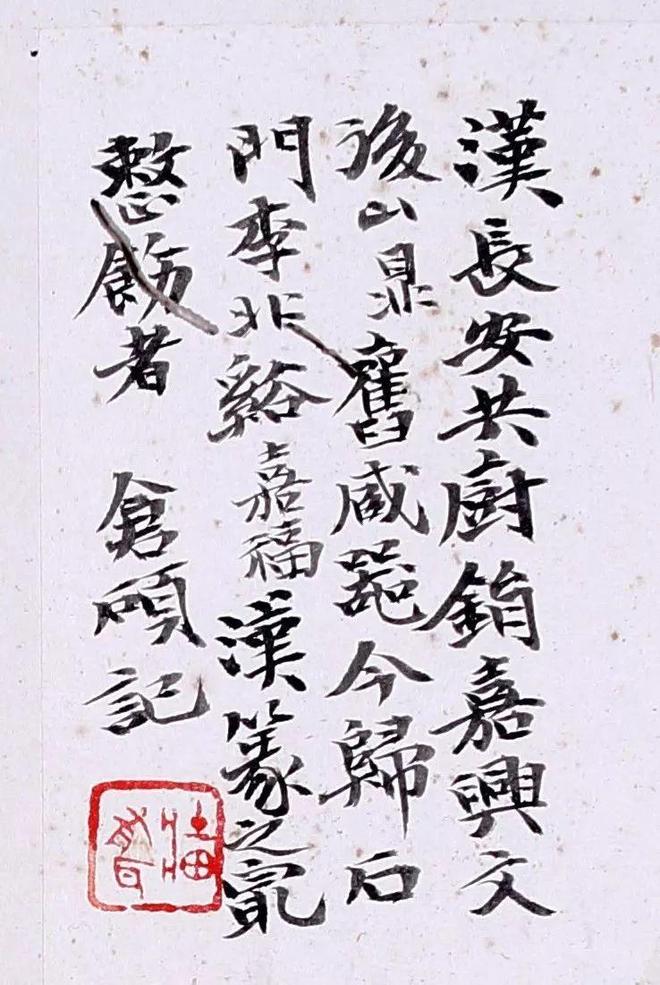 漢長安共廚鋗嘉興文
後山鼎舊咸器今歸石
門李非谿嘉福漢篆之㝡
整飭者 倉碩記